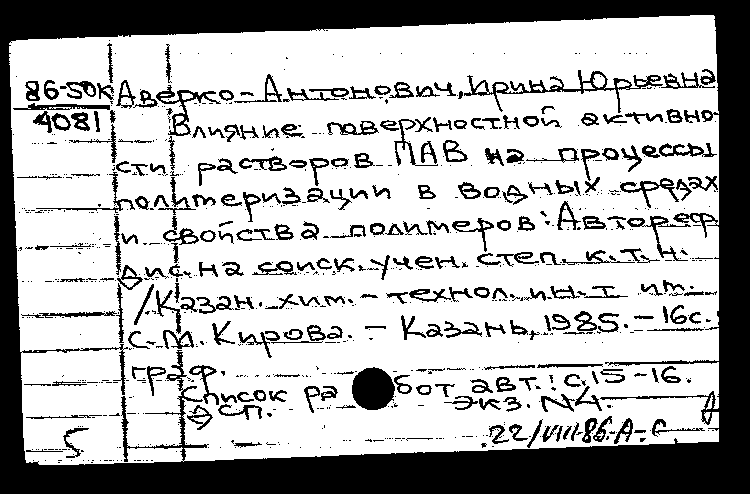 86-50К Аверко-Антонович, Ирина Юрьевна
4081 Влияние поверхностной активно-
сти растворов ПАВ на процессы
полимеризации в водных средах
и свойства полимеров: Автореф.
Дис. на соиск. учен. степ. к.т.н.
/Казан. хим.-технол. ин.т им.
С.М. Кирова. - Казань, 1985. - 16с.:
граф.
Список работ авт.: с.15-16.
ДСП. Экз. N4.
5 22/VIII-86. А-С.